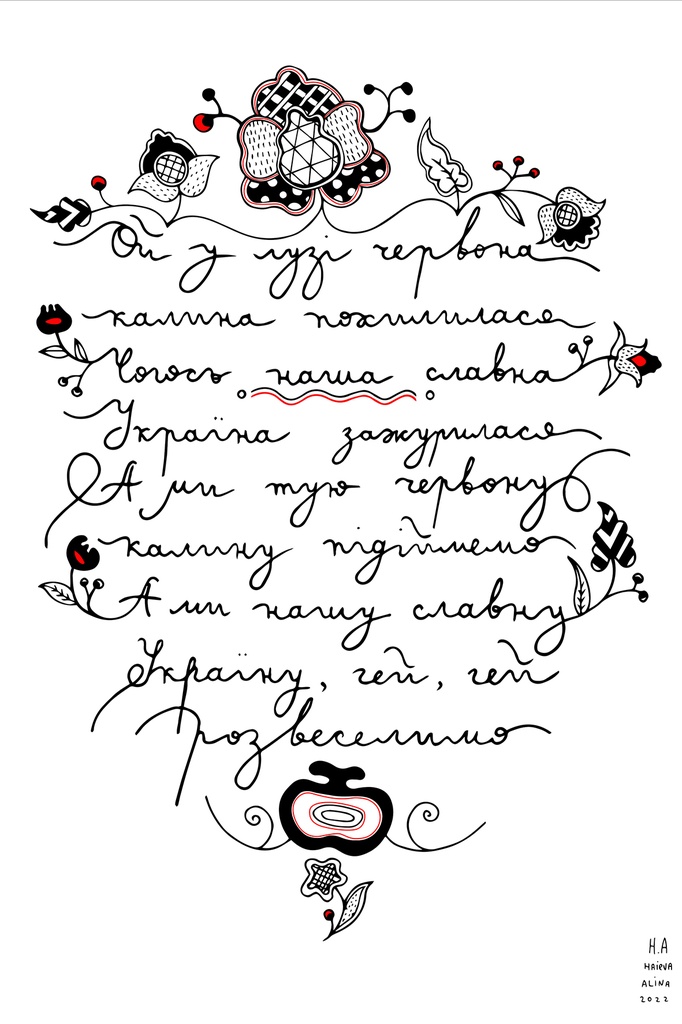 Ой у лузі червона
калина похилилася
Чогось наша славна
Україна зажурилася
А ми тую червону
калину підіймемо
А ми нашу славну
Україну, гей, гей
розвеселимо
H.A
HAIEVA
ALINA
2022